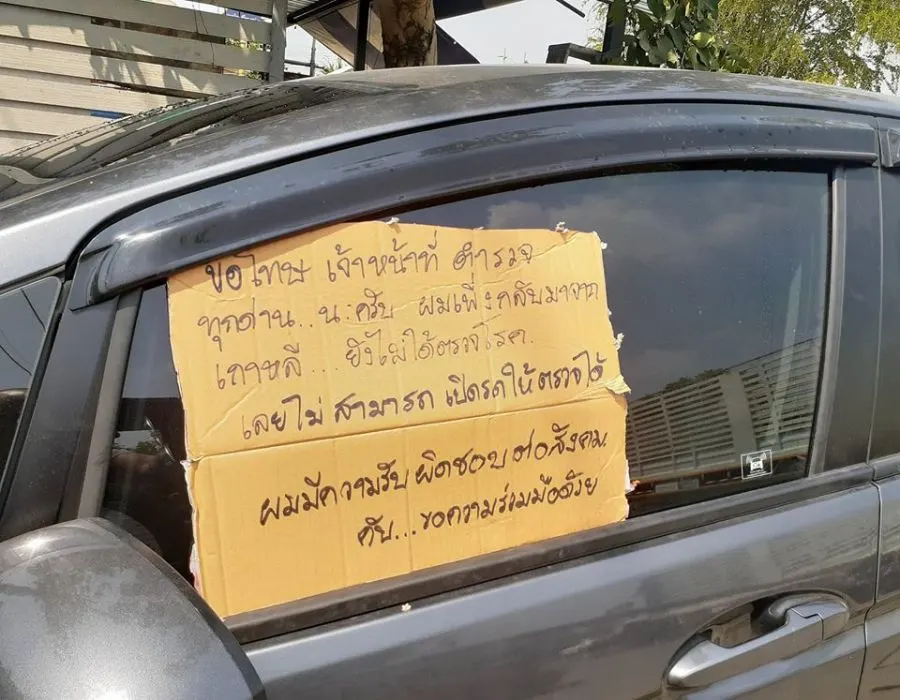 ขอโทษ เจ้าหน้าที่ ตำรวจ
ทุกด่าน..นะครับ ผมเพิ่งกลับมาจาก
เกาหลี...ยังไม่ได้ตรวจโรค.
เลยไม่สามารถ เปิดรถให้ตรวจได้
ผมมีความรับผิดชอบต่อสังคม
คับ...ขอความร่วมมือด้วย